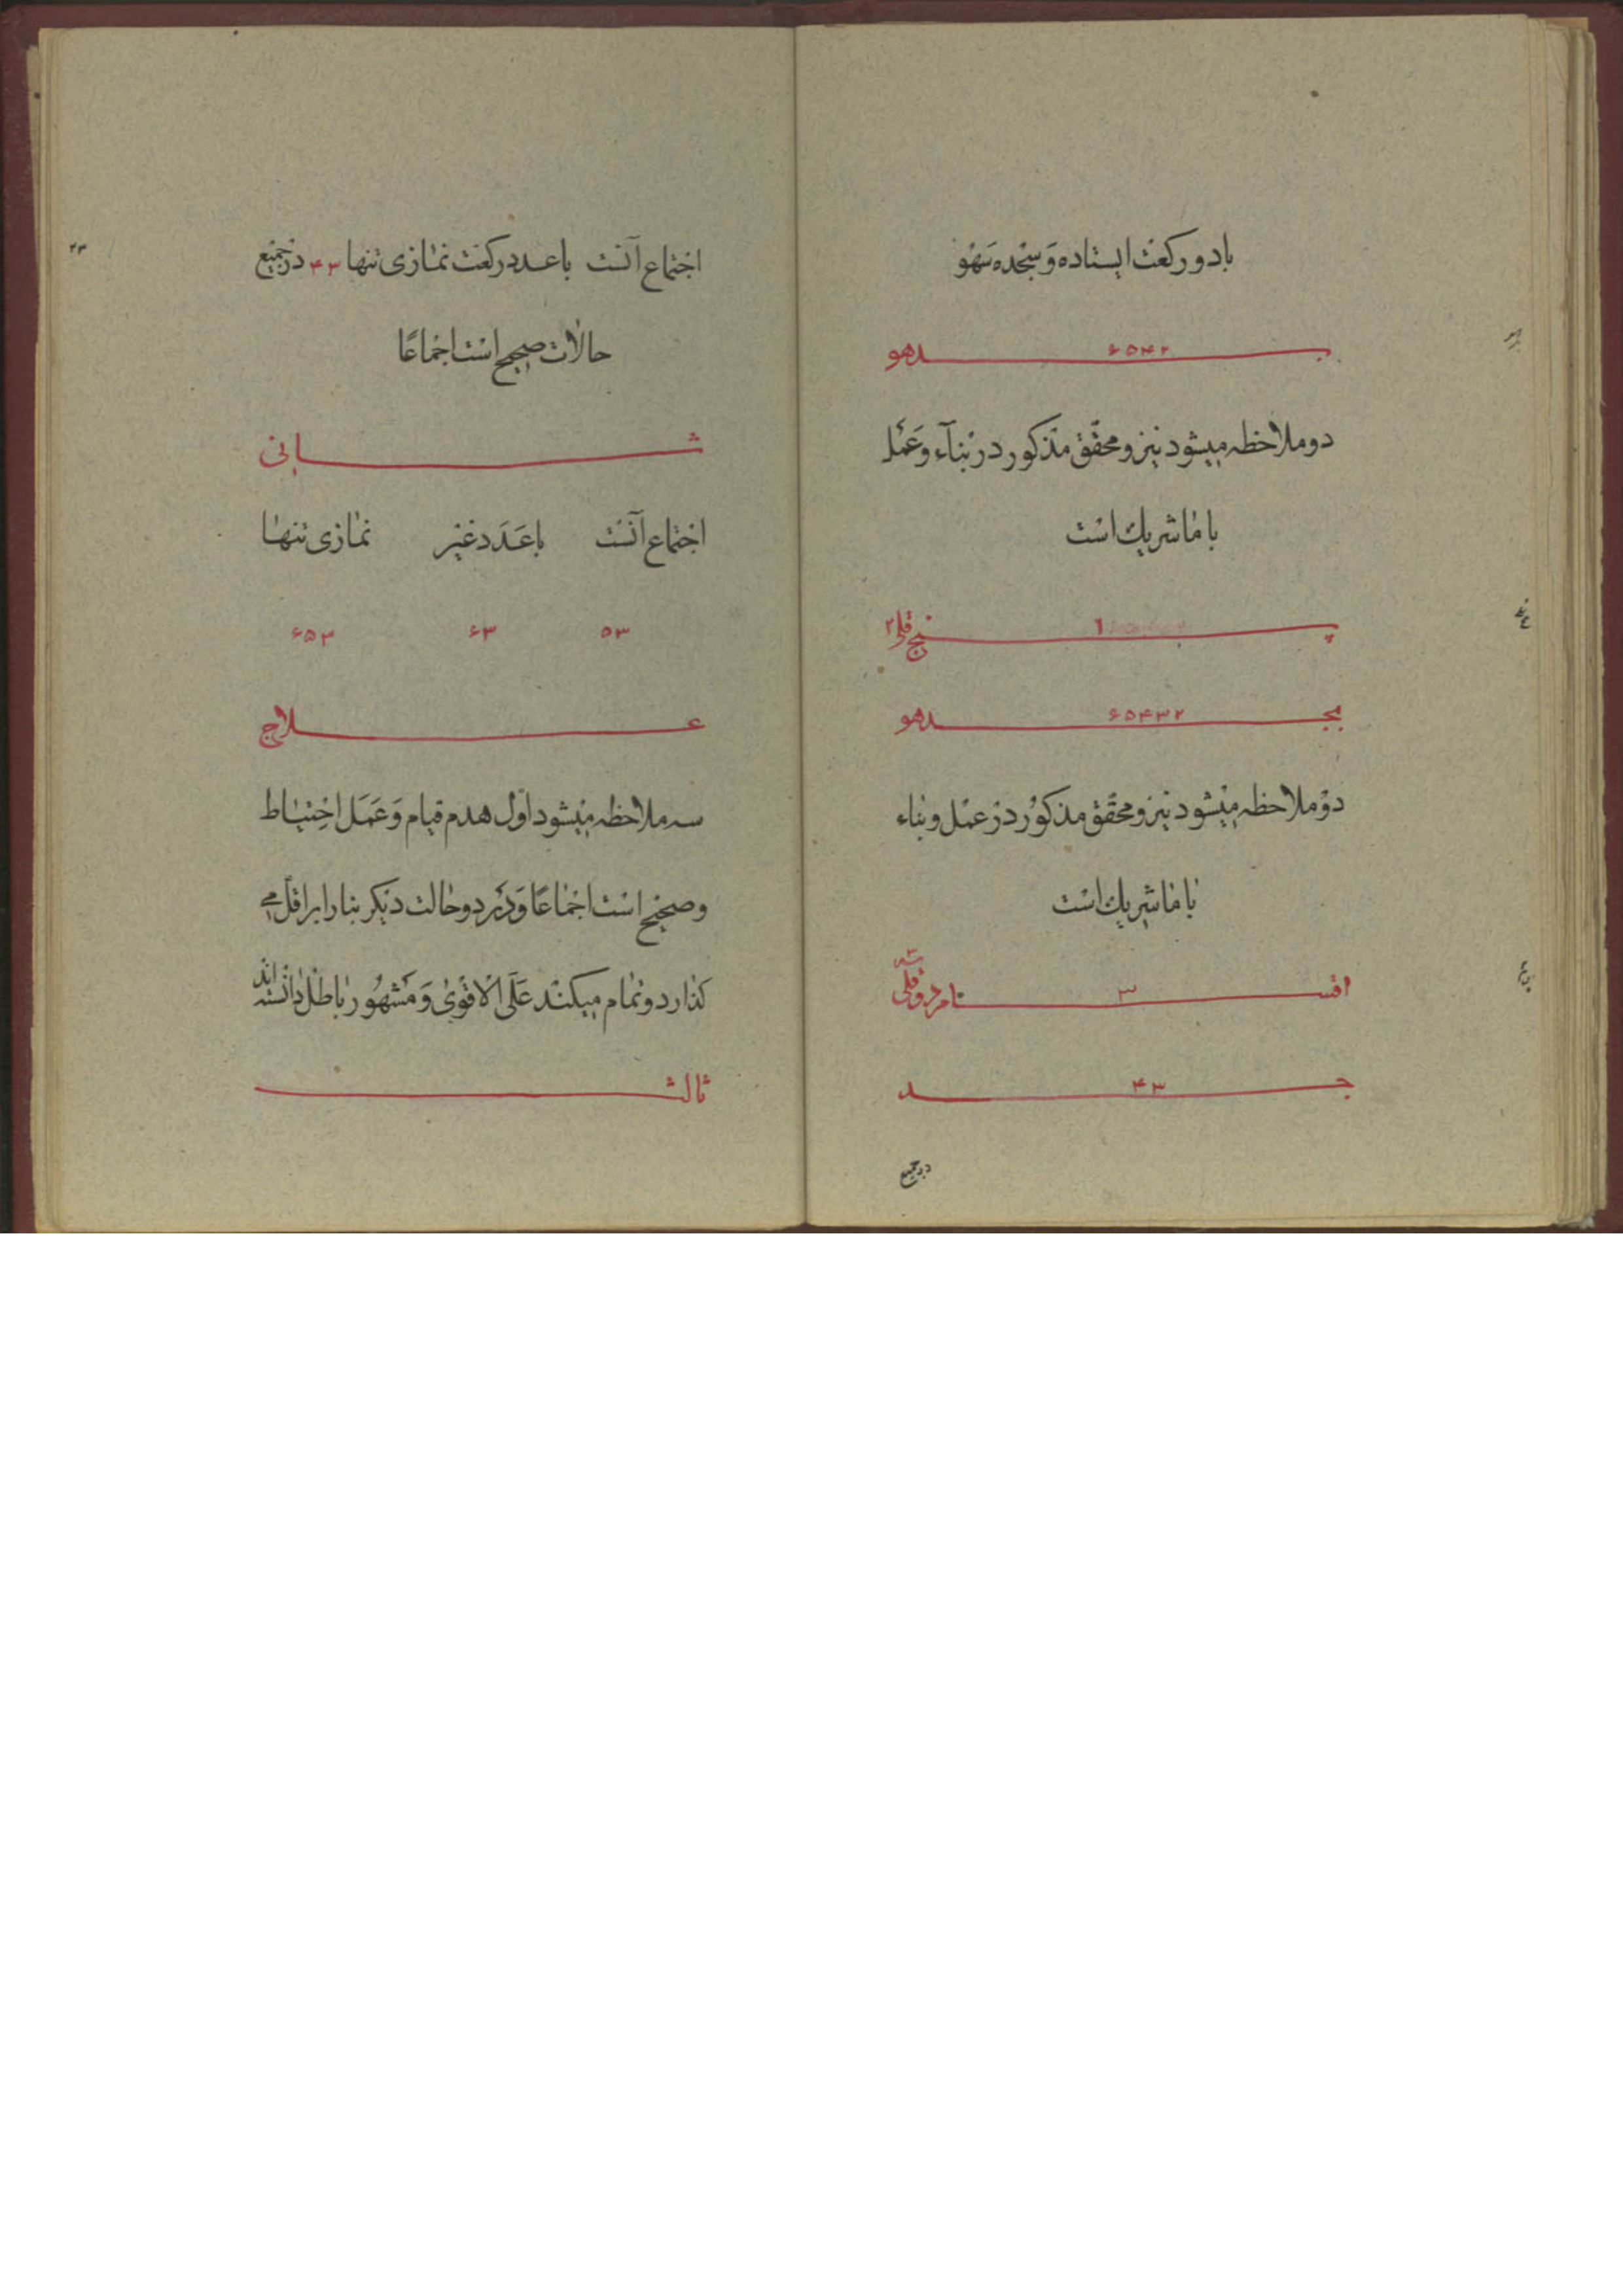 با دو رکعت ایستاده وَ سجده سَهْو
بـ ۶۵۴۲ ـدهو
دو ملاحظه میشود نیز و محقّق مذکور در بنآء وَ عَمَل
با ما شریك است
۱
بجـ ۶۵۴۳۲ ـدهو
دوْ ملاحظه میشود نیز و محقّق مذکوْر در عمل و بناء
با ما شریك است
اقسـ ۳ ـام
جـ ۴۳ ـد
در جمیع
۲۳
اجتماع آنست با عدد رکعت نمازی تنها ۴۳ در جمیع
حالات صحیح است اجماعًا
ثـــانی
اجتماع آنست با عَدَد غیر نمازی تنها
۵۳ ۶۳ ۶۵۳
عـــلاج
سه ملاحظه میشود اوّل هدم قیام وَ عَمَل احتیاط
و صحیح است اجماعًا وَ در دو حالت دیگر بنا را بر اقلّ می
گذارد و تمام میکند عَلَی الاقوٰی وَ مشهُور باطل دانسته اند
ثالث